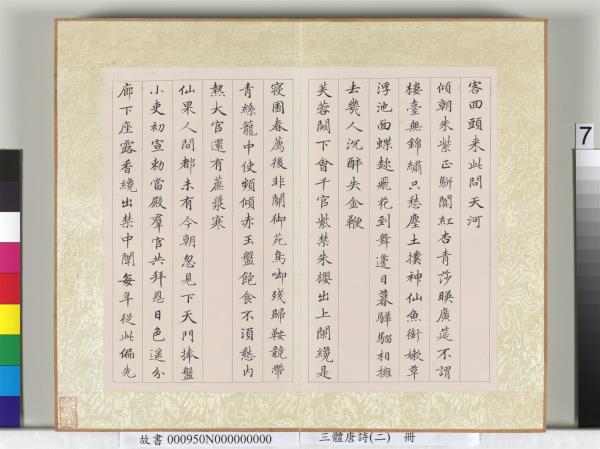 客回頭来此問天河
傾朝朱紫正駢闐紅杏青莎暎廣筵不謂
樓臺無錦繡只愁塵土撲神仙魚銜嫩草
浮池面蝶趂飛花到舞邊日暮驊騮相擁
去幾人沉醉失金鞭
芙蓉闕下會千官紫禁朱櫻出上闌纔是
寢園春薦後非關御苑鳥啣殘歸鞍競帶
青絲籠中使頻傾赤玉盤飽食不須愁内
熱大官還有蔗漿寒
仙果人間都未有今朝忽見下天門捧盤
小吏初宣勅當殿羣官共拜恩日色遥分
廊下座露香纔出禁中闈每年從此偏先
故書 000950N000000000 三體唐詩(二) 冊
7